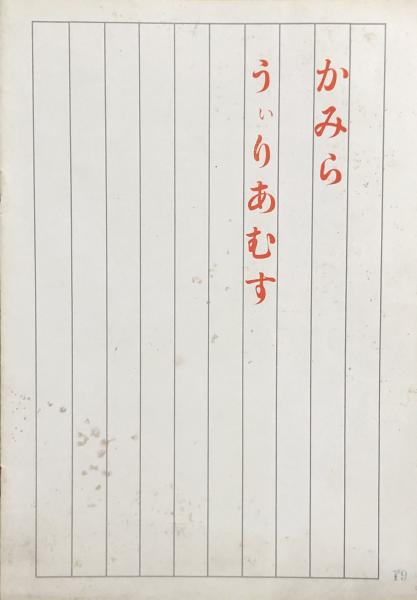 かみら
うぃりあむす
19